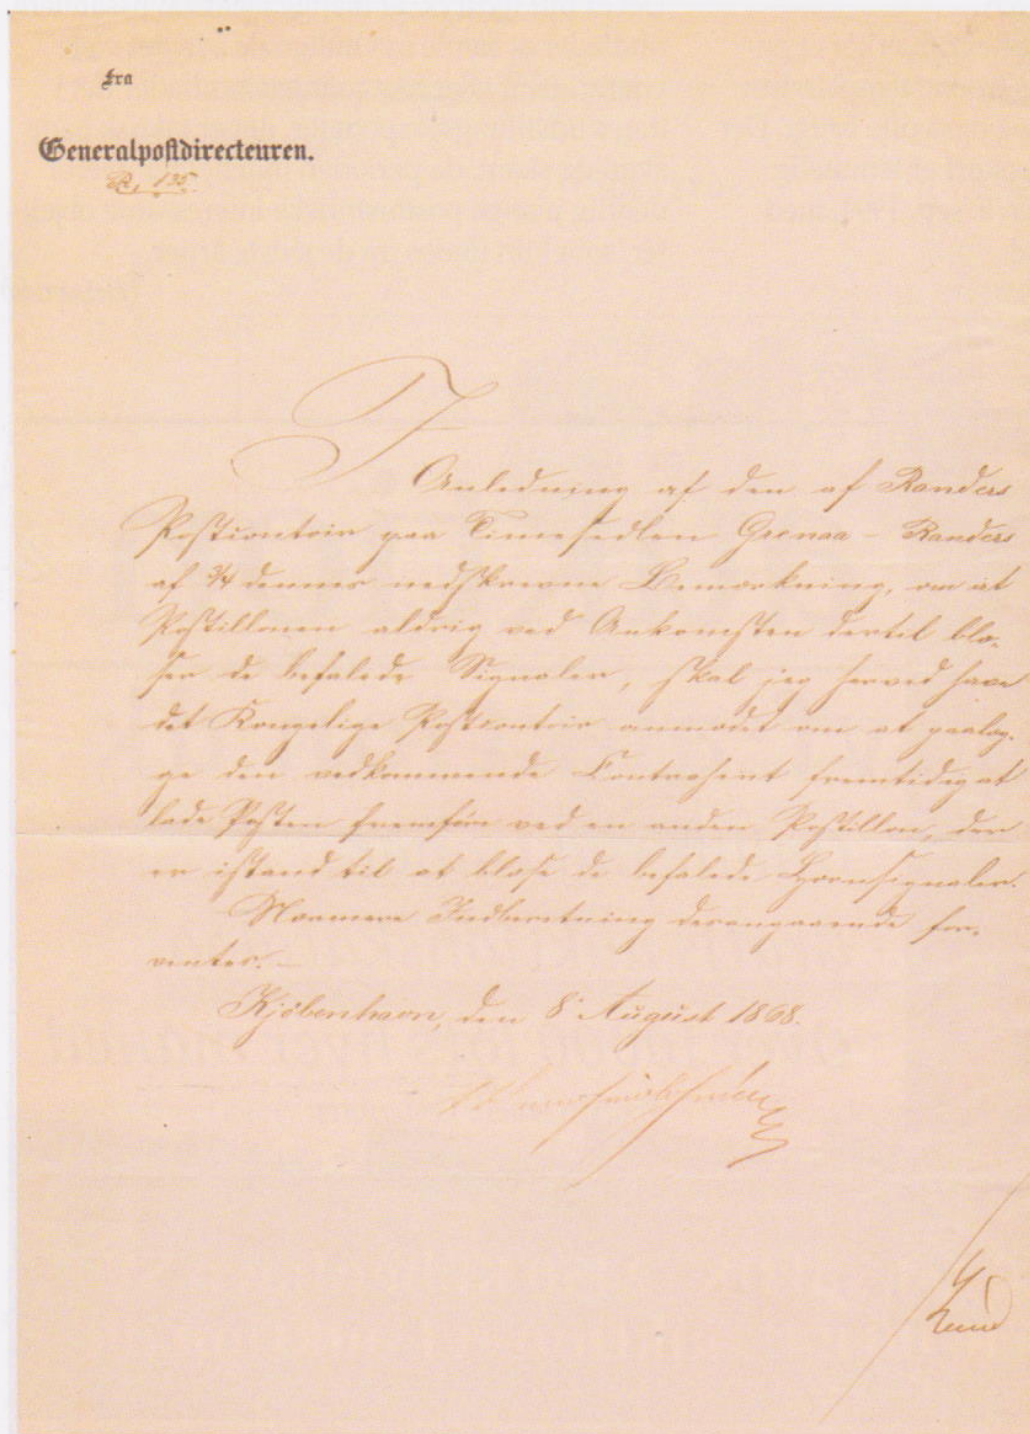 Fra
Generalpostdirecteuren.
R. 135.
I
Anledning af den af Randers
Postcontoir paa Timesedlen Grenaa – Randers
af 3/4 dennes nedskrevne Bemærkning, om at
Postillonen aldrig ved Ankomsten dertil blæ-
ser de befalede Signaler, skal jeg herved have
det Kongelige Postcontoir anmodet om at paalæg-
ge den vedkommende Contrahent fremtidig at
lade Posten fremføre ved en anden Postillon, der
er istand til at blæse de befalede Hornsignaler.
Nærmere Indberetning derangaaende for-
ventes. —
Kjøbenhavn, den 8' August 1868.